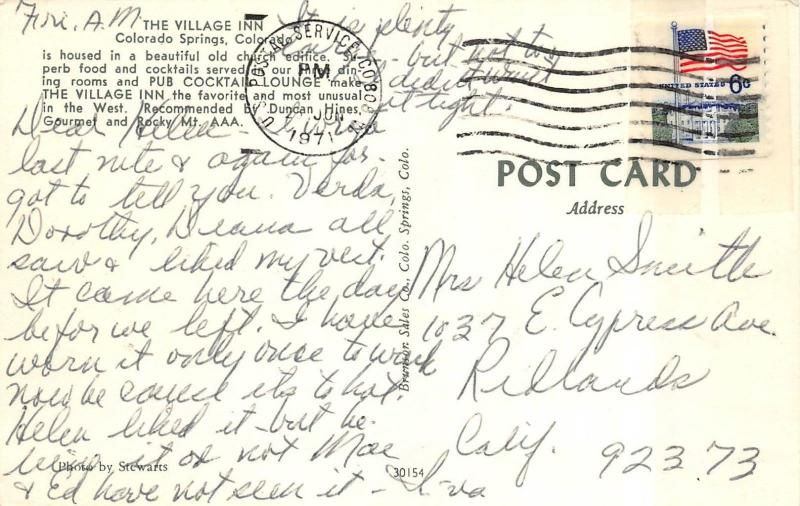 Fri, A.M.
THE VILLAGE INN
Colorado Springs, Colorado
is housed in a beautiful old church edifice. Su-
perb food and cocktails served in our five din-
ing rooms and PUB COCKTAIL LOUNGE make
THE VILLAGE INN the favorite and most unusual
in the West. Recommended by Duncan Hines,
Gourmet and Rocky Mt. AAA.
Dear Helen - I wrote
last nite & again for-
got to tell you. Verda,
Dorothy, Deana all
saw & liked my vest.
It came here the day
befor we left. I have
worn it only once to work
now be cause its to hot.
Helen liked it - but be
leive it or not Mae
& Ed have not seen it - I-va
It is plenty
but not to
tight.
Photo by Stewarts
30154
Brunton Sales Co., Colo. Springs, Colo.
U.S. POSTAL SERVICE, CO
PM
JUN
1971
UNITED STATES 6¢
POST CARD
Address
Mrs Helen Smith
1037 E. Cypress Ave.
Redlands
Calif. 92373